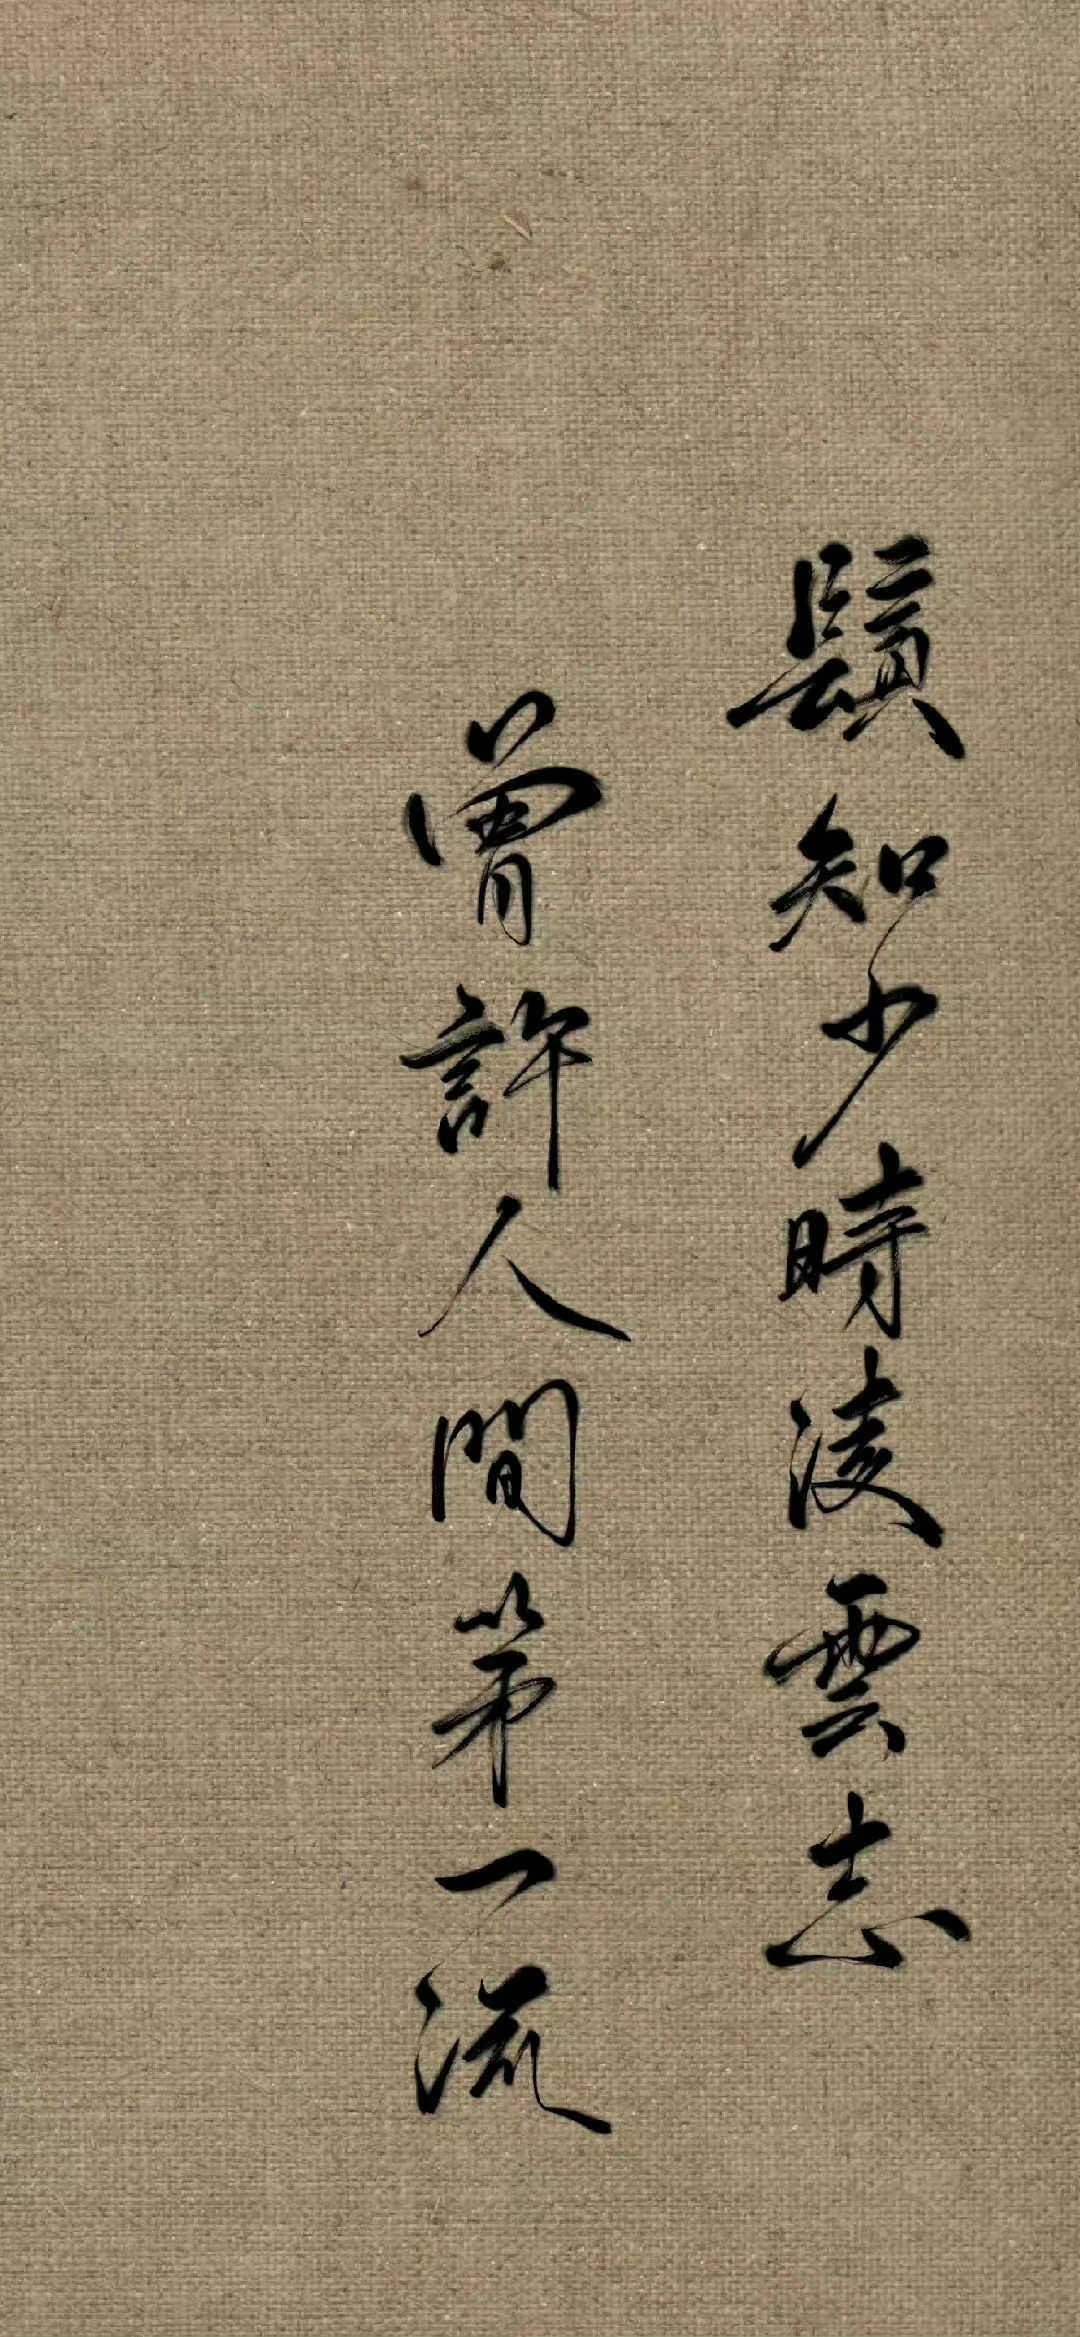 鬚知少時凌雲志
曾許人間第一流